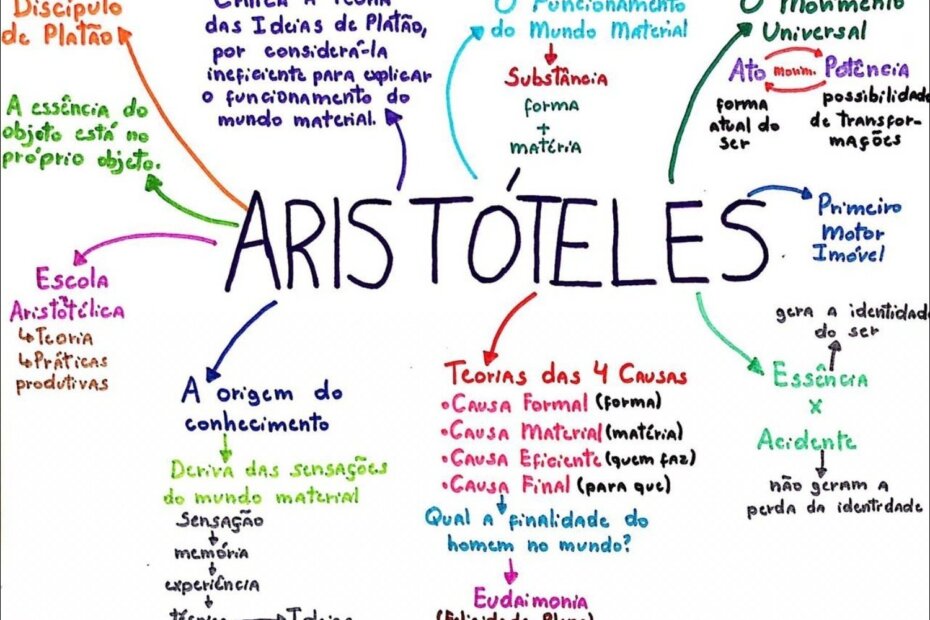 Discípulo
de Platão
A essência do
objeto está no
próprio objeto.
Escola
Aristotélica
↳Teoria
↳Práticas
produtivas
das Ideias de Platão,
por considerá-la
ineficiente para explicar
o funcionamento do
mundo material.
O Funcionamento
do Mundo Material
Substância
forma
+
matéria
O Movimento
Universal
Ato Movim. Potência
forma
atual do
ser
possibilidade
de transfor-
mações
ARISTÓTELES
Primeiro
Motor
Imóvel
A origem do
conhecimento
Deriva das sensações
do mundo material
Sensação
memória
experiência
técnica
Teorias das 4 Causas
•Causa Formal (forma)
•Causa Material (matéria)
•Causa Eficiente (quem faz)
•Causa Final (para que)
Qual a finalidade do
homem no mundo?
Eudaimonia
(Felicidade Plena)
gera a identidade
do ser
Essência
X
Acidente
não geram a
perda da identidade